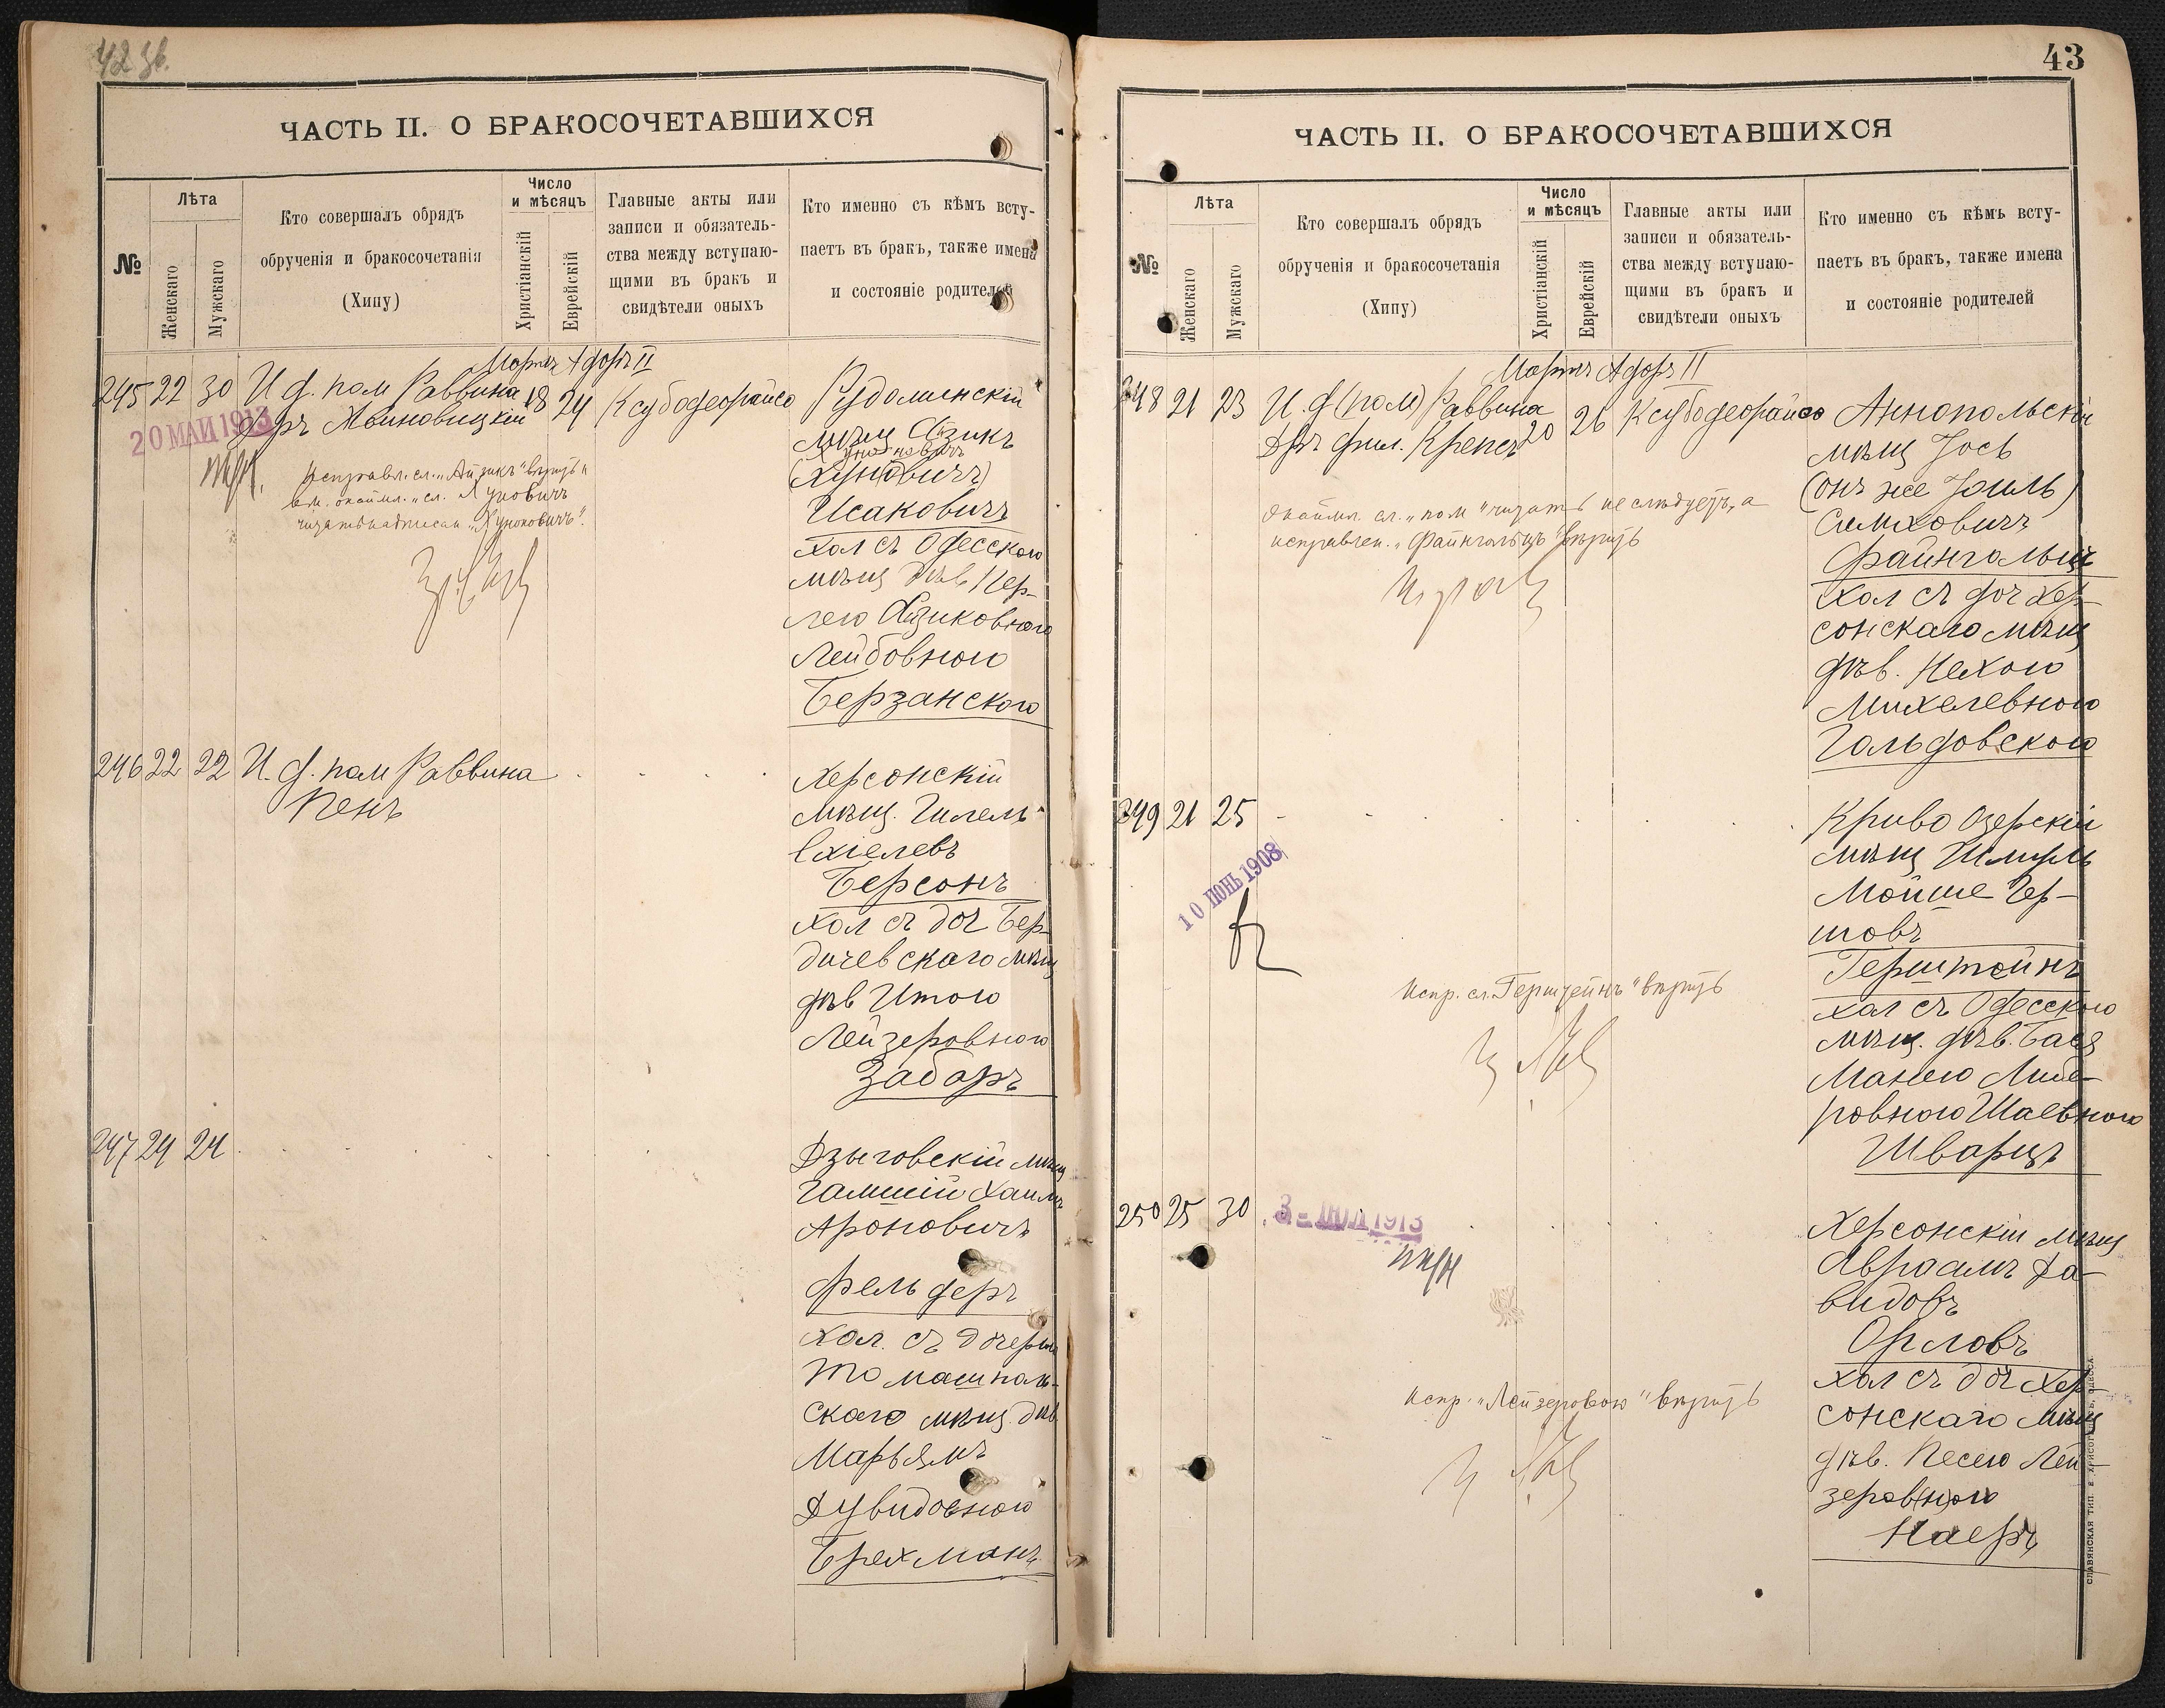 42 зв.
ЧАСТЬ II. О БРАКОСОЧЕТАВШИХСЯ
№
Лѣта
Женскаго
Мужскаго
Кто совершалъ обрядъ
обрученія и бракосочетанія
(Хипу)
Число
и мѣсяцъ
Христіанскій
Еврейскій
Главные акты или
записи и обязатель-
ства между вступаю-
щими въ бракъ и
свидѣтели оныхъ
Кто именно съ кѣмъ всту-
паетъ въ бракъ, также имена
и состояніе родителей
Мартъ Адаръ II
245 22 30 И. д. пом Раввина 18 24 Ксубодеорайсо
20 МАЙ 1913
Исправл. сл. „Айзикъ" вѣрить и
читать надписан „Хуноновичъ".
Рудоминскій
мѣщ Айзикъ
Хуноновичъ
(Хуновичъ)
Исаковичъ
хол съ Одесскою
мѣщ дѣв Пер-
лею Айзиковною
Лейбовною
Берзанскою
246 22 22 И. д. пом Раввина
Пенъ
Херсонскій
мѣщ. Гилель
Ехіелевъ
Берсонъ
хол съ доч Бер-
дичевскаго мѣщ
дѣв Итою
Лейзеровною
Забаръ
247 24 24
Дзыговскій мѣщ
Гамшій Хаимъ
Ароновичъ
Фельдеръ
хол. съ дочерью
Томашполь-
скаго мѣщ. дѣв
Марьямъ
Дувидовною
Брехманъ
43
ЧАСТЬ II. О БРАКОСОЧЕТАВШИХСЯ
№
Лѣта
Женскаго
Мужскаго
Кто совершалъ обрядъ
обрученія и бракосочетанія
(Хипу)
Число
и мѣсяцъ
Христіанскій
Еврейскій
Главные акты или
записи и обязатель-
ства между вступаю-
щими въ бракъ и
свидѣтели оныхъ
Кто именно съ кѣмъ всту-
паетъ въ бракъ, также имена
и состояніе родителей
Мартъ Адаръ II
248 21 23 И. д (пом) Раввина 20 26 Ксубодеорайсо
Дръ фил. Крепсъ
окаймл. сл. „пом" читать не слѣдуетъ, а
исправлен. „Файнгольцъ" вѣрить
Аннопольскій
мѣщ Іось
(онъ же Іоиль)
Симховичъ
Файнгольцъ
хол съ доч Хер-
сонскаго мѣщ
дѣв. Нехою
Михелевною
Гольдовскою
249 21 25
10 ІЮНЬ 1908
Испр. сл. Герштейнъ" вѣрить
Криво Озерскій
мѣщ Шмуль
Мойше Гер-
шовъ
Герштейнъ
хол съ Одесскою
мѣщ. дѣв. Бася
Манею Мише-
ровною Шаевною
Шварцъ
250 25 30
3 - ІЮЛ 1913
испр. „Лейзеровою" вѣрить
Херсонскій мѣщ
Авраамъ Да-
видовъ
Орловъ
хол съ доч Хер-
сонскаго мѣщ
дѣв. Песею Лей-
зеров(н)ою
Наеръ
СЛАВЯНСКАЯ ТИП. Е. ХРИСОГЕЛОСЪ, ОДЕССА